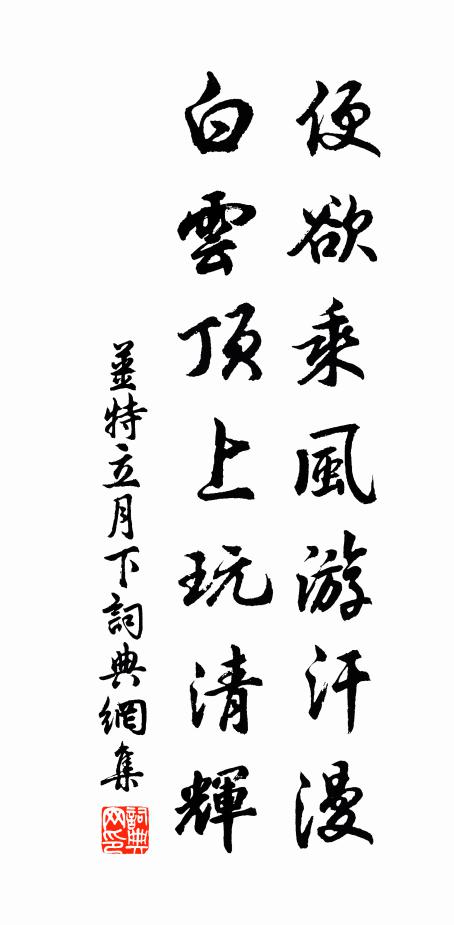 便欲乘風游汗漫
白雲頂上玩清輝
姜特立月下詞典網集
詞典
网印